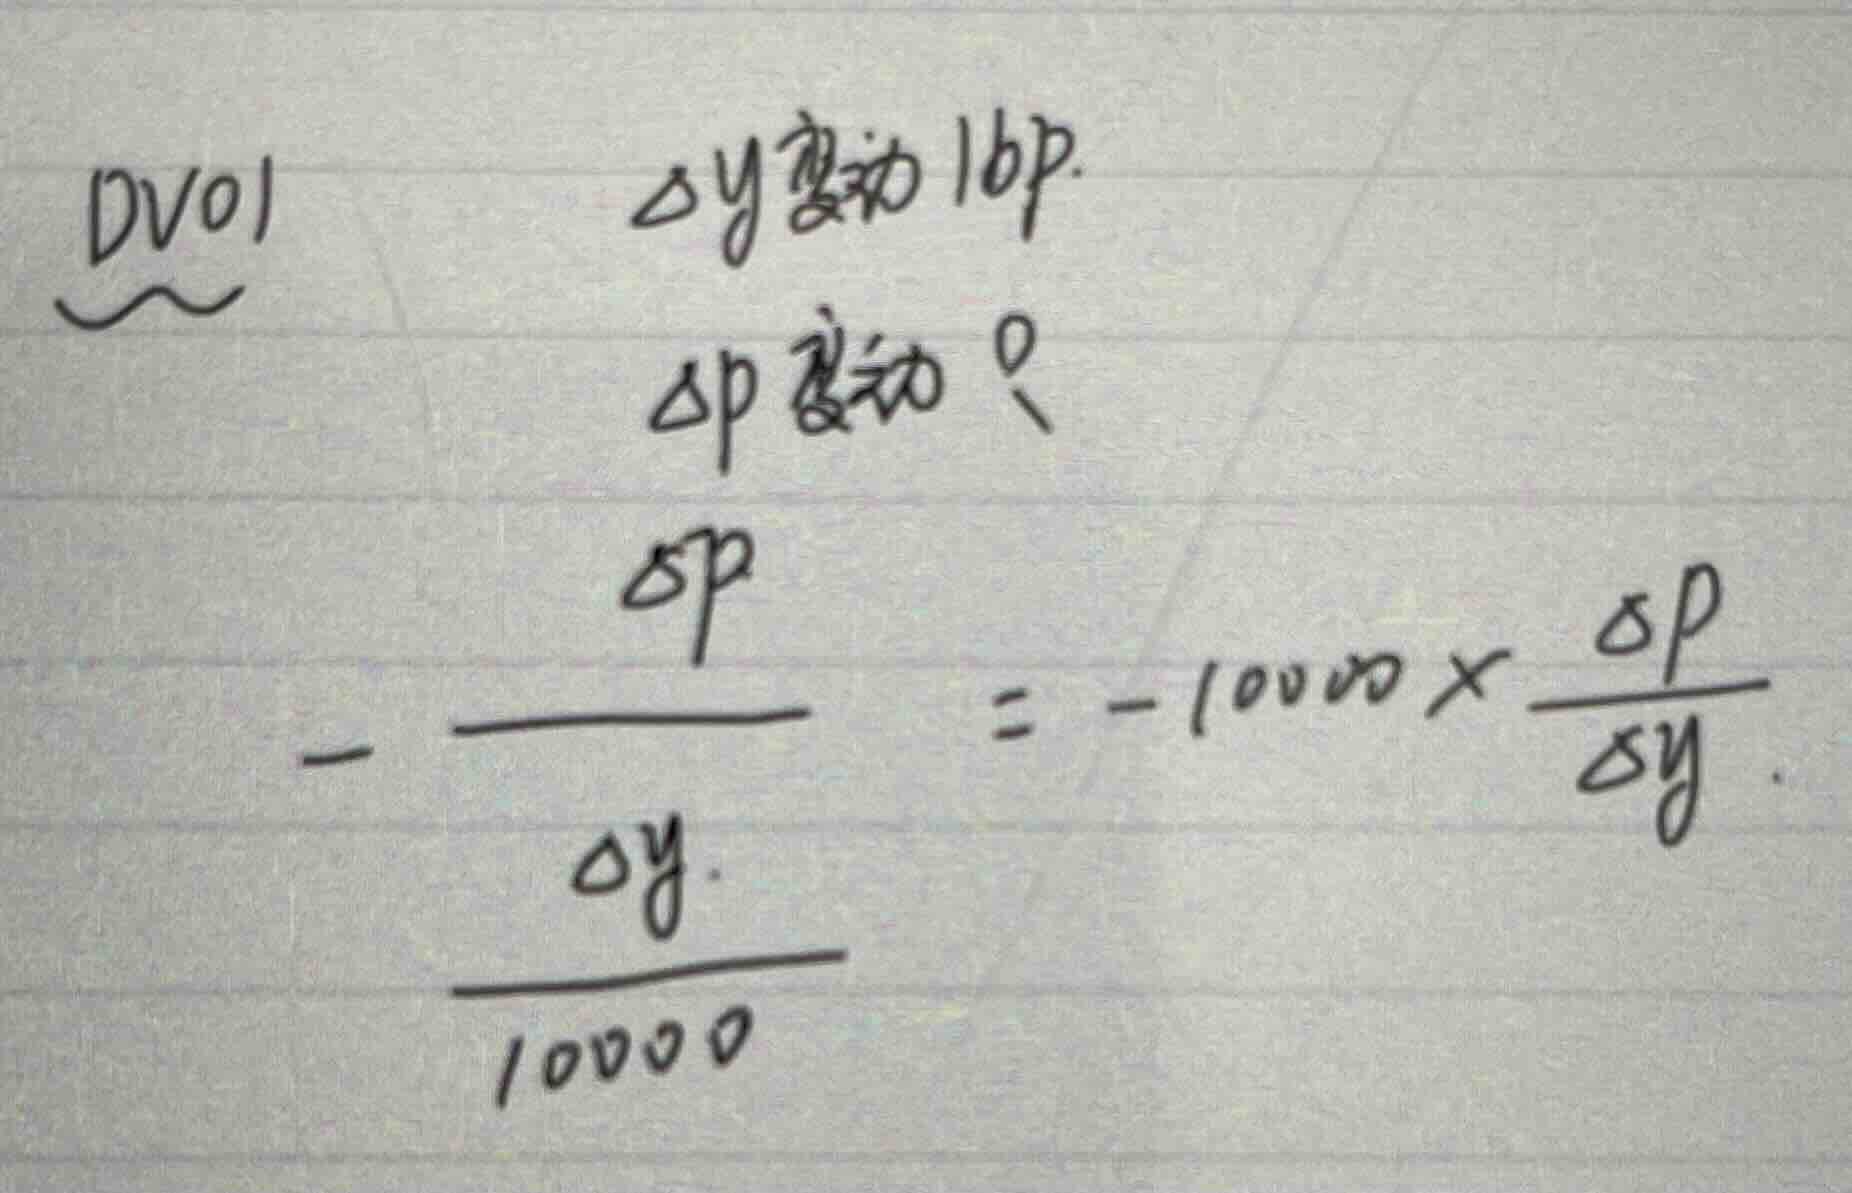 DV01 Δy变动1bp.
Δp变动?
- Δp / (Δy. / 10000) = -10000 × Δp / Δy.